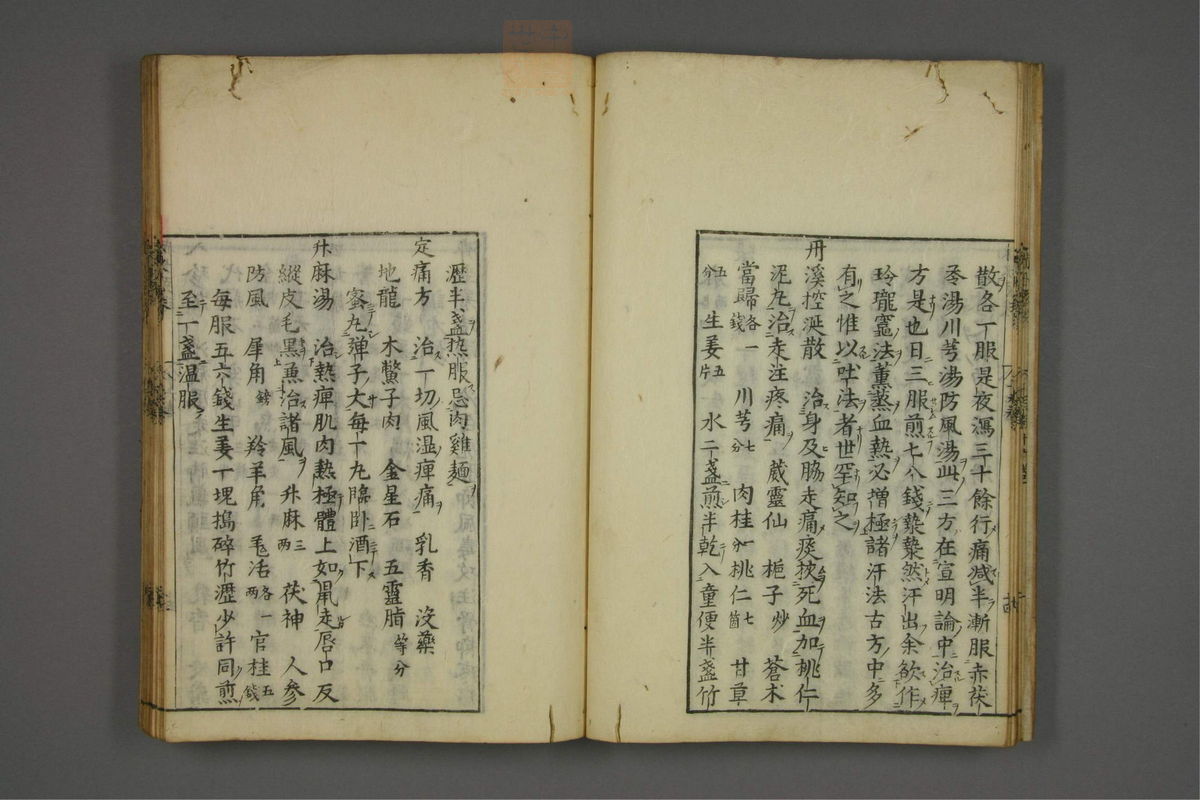 散各一服是夜瀉三十餘行痛減半漸服赤茯
苓湯川芎湯防風湯此三方在宣明論中治痺
方是也日三服煎七八錢漐漐然汗出余欲作
玲瓏竈法薫蒸血熱必増極諸汗法古方中多
有之惟以吐法者世罕知之
丹溪控涎散 治身及脇走痛痰挾死血加桃仁
泥丸治走注疼痛 葳靈仙 梔子炒 蒼术
當歸各一錢 川芎七分 肉桂一分 桃仁七箇 甘草
五分 生姜五片 水二盞煎半乾入童便半盞竹
瀝半盞熱服忌肉雞麺
定痛方 治一切風濕痺痛 乳香 沒藥
地龍 木鱉子肉 金星石 五靈脂等分
蜜丸彈子大每一丸臨卧酒下
升麻湯 治熱痺肌肉熱極體上如鼠走唇口反
縱皮毛黒兼治諸風 升麻三兩 茯神 人參
防風 犀角鎊 羚羊角 羗活各一兩 官桂五錢
每服五六錢生姜一塊搗碎竹瀝少許同煎
至一盞温服